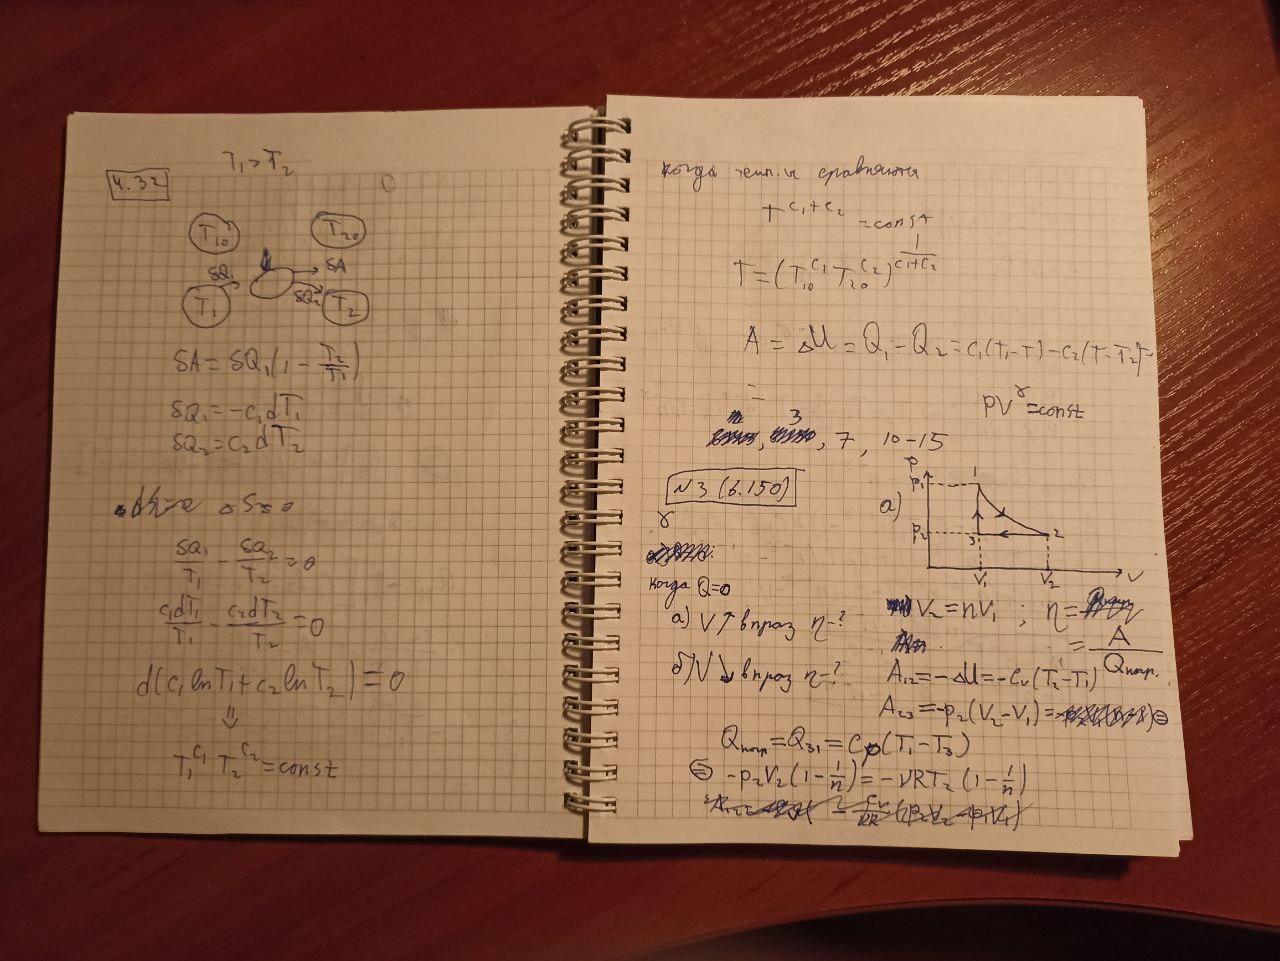 T₁>T₂
4.32
T₁₀ T₂₀
δQ₁ δA
T₁ δQ₂ T₂
δA = δQ₁(1 - T₂/T₁)
δQ₁ = -c₁dT₁
δQ₂ = c₂dT₂
ΔS = 0
δQ₁/T₁ - δQ₂/T₂ = 0
c₁dT₁/T₁ - c₂dT₂/T₂ = 0
d(c₁lnT₁ + c₂lnT₂) = 0
⇓
T₁^c₁ T₂^c₂ = const
когда темп.ы сравняются
T^(c₁+c₂) = const
T = (T₁₀^c₁ T₂₀^c₂)^(1/(c₁+c₂))
A = ΔU = Q₁ - Q₂ = c₁(T₁-T) - c₂(T-T₂) =
=
PV^γ = const
3
, , 7, 10-15
N3 (6.150)
γ
когда Q=0
а) V↑ в n раз η-?
б) V↘ в n раз η-?
а) P 1
P₁
P₂ 3 2
V₁ V₂ V
V₂ = nV₁ ; η =
= A/Qпогл.
A₁₂ = -ΔU = -Cv(T₂-T₁)
A₂₃ = -p₂(V₂-V₁) = ⊜
Qпогл = Q₃₁ = Cp(T₁-T₃)
⊜ -p₂V₂(1-1/n) = -νRT₂(1-1/n)